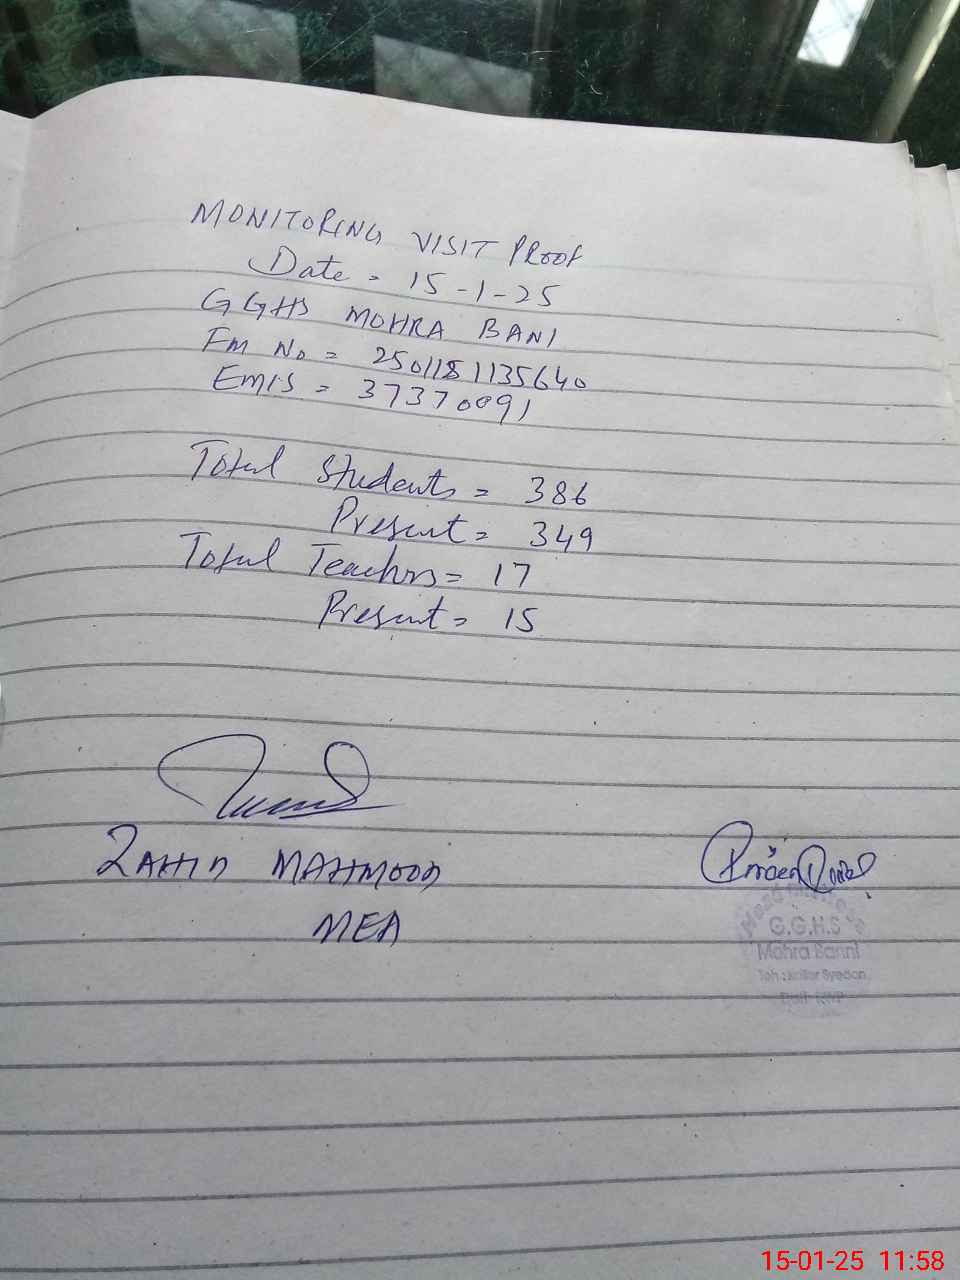 MONITORING VISIT PROOF
Date = 15-1-25
GGHS MOHRA BANI
FM No = 2501181135640
EMIS = 37370091
Total Students = 386
Present = 349
Total Teachers = 17
Present = 15
ZAHID MAHMOOD
MEA
Head Mistress
G.G.H.S
Mohra Banni
Teh: Kallar Syedan
Distt: RWP
15-01-25 11:58